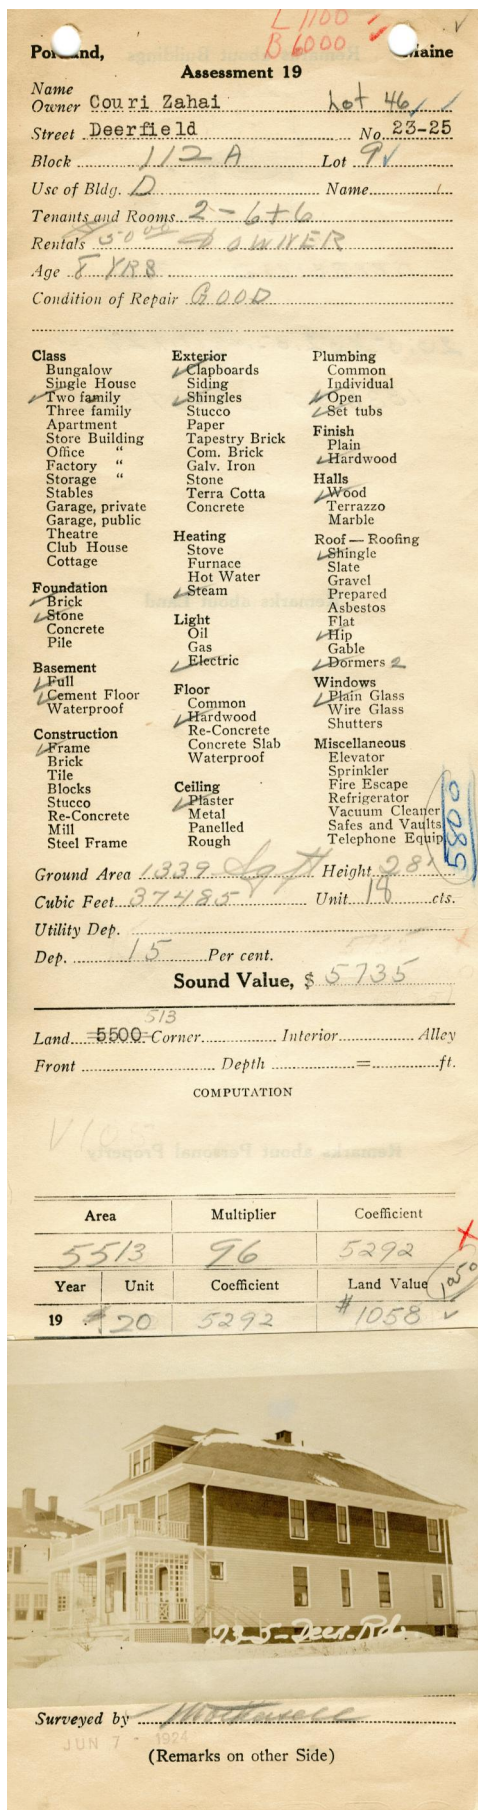 L 1100
B 6000
Portland, Maine
Assessment 19
Name
Owner Couri Zahai Lot 46
Street Deerfield No. 23-25
Block 112A Lot 9
Use of Bldg. D Name
Tenants and Rooms 2-6+6
Rentals 50 00 OWNER
Age 8 YRS
Condition of Repair GOOD
Class
Bungalow
Single House
Two family
Three family
Apartment
Store Building
Office "
Factory "
Storage "
Stables
Garage, private
Garage, public
Theatre
Club House
Cottage
Foundation
Brick
Stone
Concrete
Pile
Basement
Full
Cement Floor
Waterproof
Construction
Frame
Brick
Tile
Blocks
Stucco
Re-Concrete
Mill
Steel Frame
Exterior
Clapboards
Siding
Shingles
Stucco
Paper
Tapestry Brick
Com. Brick
Galv. Iron
Stone
Terra Cotta
Concrete
Heating
Stove
Furnace
Hot Water
Steam
Light
Oil
Gas
Electric
Floor
Common
Hardwood
Re-Concrete
Concrete Slab
Waterproof
Ceiling
Plaster
Metal
Panelled
Rough
Plumbing
Common
Individual
Open
Set tubs
Finish
Plain
Hardwood
Halls
Wood
Terrazzo
Marble
Roof — Roofing
Shingle
Slate
Gravel
Prepared
Asbestos
Flat
Hip
Gable
Dormers 2
Windows
Plain Glass
Wire Glass
Shutters
Miscellaneous
Elevator
Sprinkler
Fire Escape
Refrigerator
Vacuum Cleaner
Safes and Vaults
Telephone Equip
Ground Area 1339 Sq ft Height 28'
Cubic Feet 37485 Unit 18 cts.
Utility Dep.
Dep. 15 Per cent.
Sound Value, $ 5735
513
Land 5500 Corner Interior Alley
Front Depth = ft.
COMPUTATION
Area Multiplier Coefficient
5513 96 5292
Year Unit Coefficient Land Value
19 $20 5292 #1058
1050
23-5-Deer-Rd.
Surveyed by
JUN 7 - 1924
(Remarks on other Side)